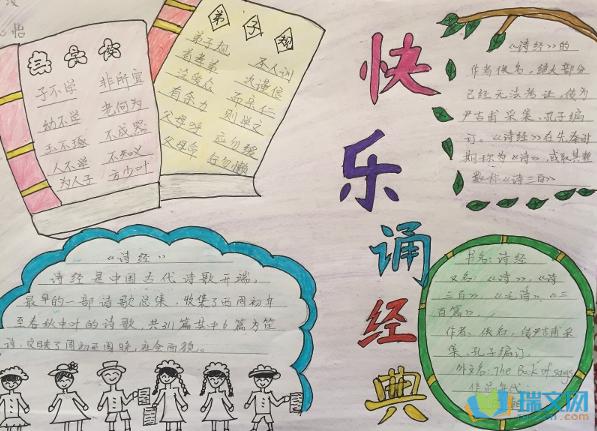 三字经
子不学 非所宜
幼不学 老何为
玉不琢 不成器
人不学 不知义
为人子 方少时
弟子规
弟子规 圣人训
首孝弟 次谨信
泛爱众 而亲仁
有余力 则学文
父母呼 应勿缓
父母命 行勿懒
快乐诵经典
《诗经》的
作者佚名,绝大部分
已经无法考证,传为
尹吉甫采集、孔子编
订。《诗经》在先秦时
期称为《诗》,或取其整
数称《诗三百》
《诗经》
诗经是中国古代诗歌开端,
最早的一部诗歌总集,收集了西周初年
至春秋中叶的诗歌,共311篇其中6篇为笙
诗,反映了周初至周晚
书名:诗经
又名:《诗》、《诗
三百》、《毛诗》、《三
百篇》
作者:佚名,传尹吉甫采
集、孔子编订
外文名:The Book of songs
作品年代:
瑞文网